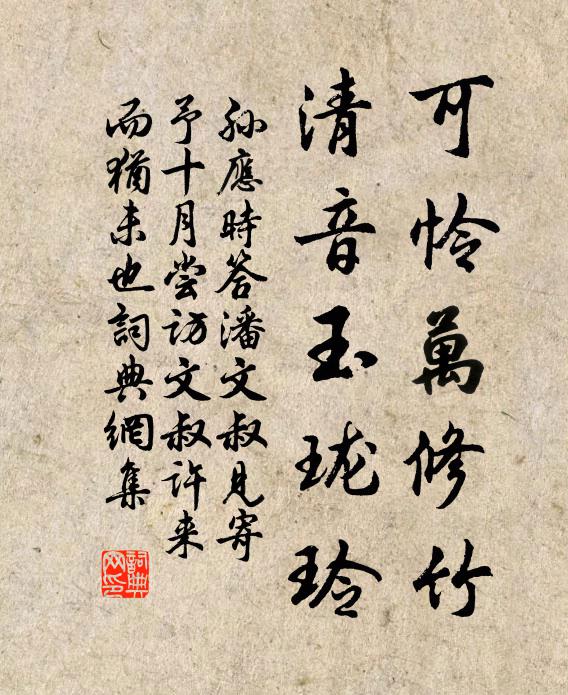 可怜萬修竹
清音玉珑玲
孙應時答潘文叔見寄
予十月尝访文叔许来
而猶未也詞典網集
詞典
网印